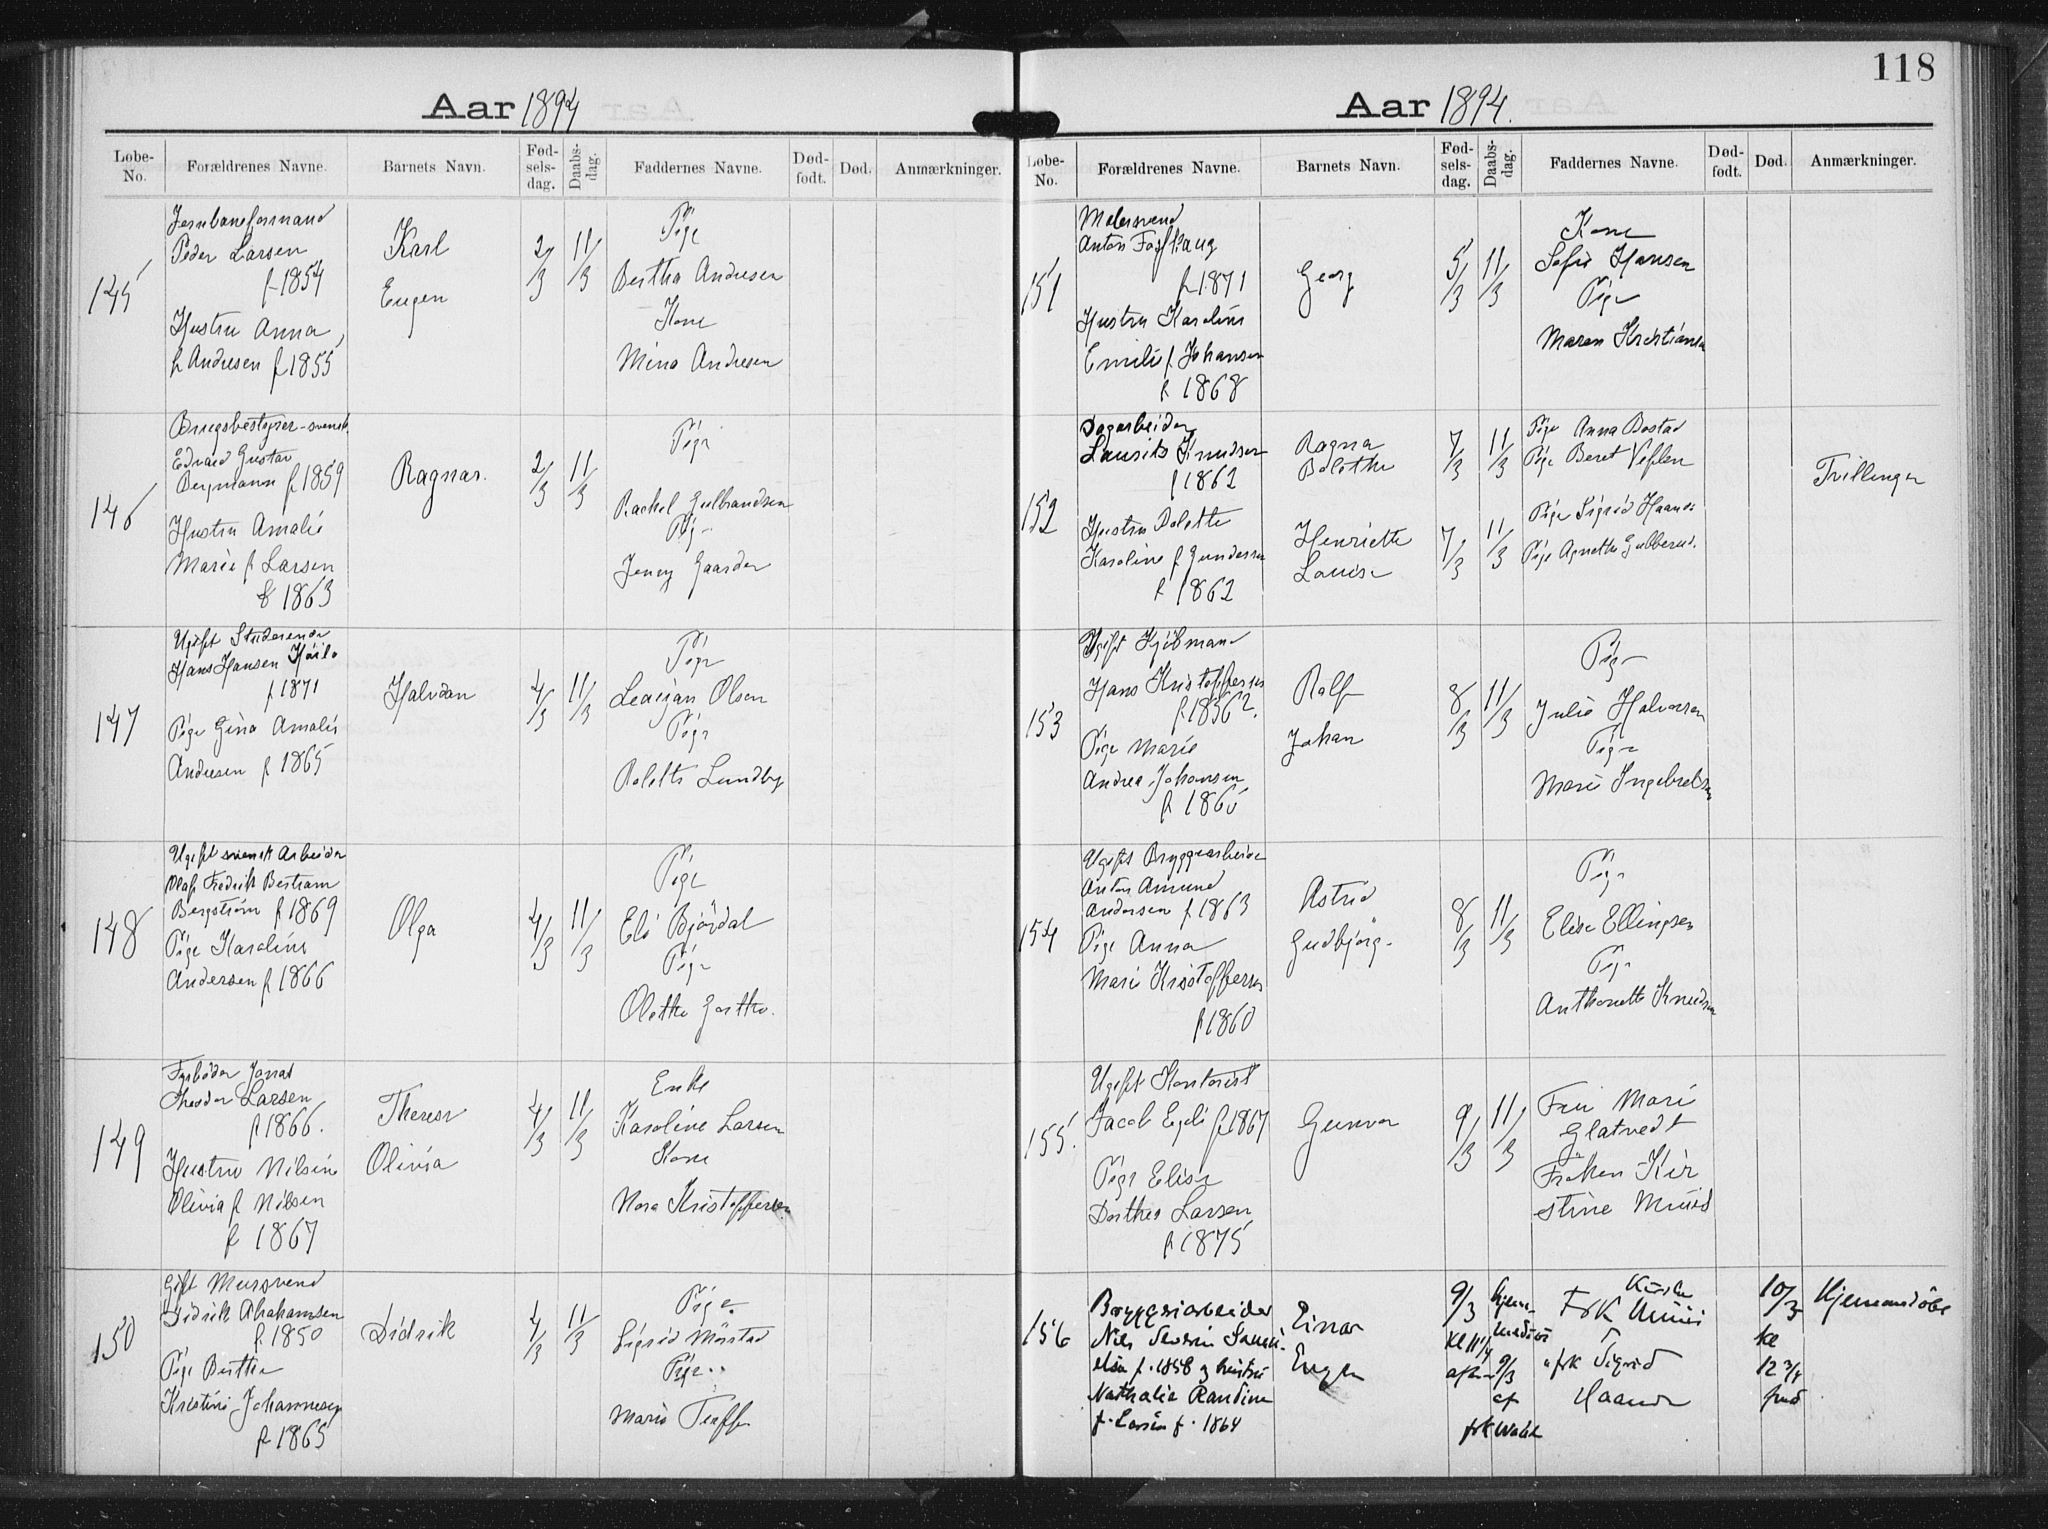 118
Aar 1894
Løbe-No. Forældrenes Navne. Barnets Navn. Fød-sels-dag. Daabs-dag. Faddernes Navne. Død-født. Død. Anmærkninger.
145
Jernbaneformand
Peder Larsen
f 1854
Hustru Anna
f. Andresen f 1855
Karl
Eugen
2/3
11/3
Pige
Bertha Andresen
Kone
Mina Andresen
146
Brugsbestyrer - svensk
Edvard Gustav
Bergmann f 1859
Hustru Amalie
Marie f Larsen
f 1863
Ragnar.
2/3
11/3
Pige
Rachel Gulbrandsen
Pige
Jenny Gaarder
147
Ugift Studerende
Hans Hansen
f 1871
Pige Gina Amalie
Andresen f 1865
Halvdan
4/3
11/3
Pige
Olsen
Pige
Lundby
148
Ugift svensk Arbeider
Olaf Fredrik Bertram
Bergström f 1869
Pige Karoline
Andersen f 1866
Olga
4/3
11/3
Pige
Eli Björdal
Pige
Olette
149
Fyrbøder Jonas
Theodor Larsen
f 1866.
Hustru Nilsine
Olivia f Nilsen
f 1867
Therese
Olivia
4/3
11/3
Enke
Karoline Larsen
Kone
Nora Kristoffersen
150
Gift Mursvend
Didrik Abrahamsen
f. 1850
Pige Berthe
Kristine Johannesen
f 1865
Didrik
4/3
11/3
Pige
Sigrid
Pige
Marie
Aar 1894.
Løbe-No. Forældrenes Navne. Barnets Navn. Fød-sels-dag. Daabs-dag. Faddernes Navne. Død-født. Død. Anmærkninger.
151
Malersvend
Anton
f 1871
Hustru Karoline
Emilie f Johansen
f 1868
Georg
5/3
11/3
Kone
Sofie Hansen
Pige
Maren Kristiansen
152
Dagarbeider
Laurits Knudsen
f 1862
Hustru Bolette
Karoline f Gundersen
f 1862
Ragna
Bolette
Henriette
Louise
7/3
11/3
7/3
11/3
Pige Anna Bostad
Pige Beret
Pige Sigrid
Pige Agnethe Gubberud.
Tvillinger
153
Ugift Kjøbmand
Hans Kristoffersen
Pige Marie
Andrea Johansen
f 1865
Rolf
Johan
8/3
11/3
Pige
Julie Halvorsen
Pige
Marie Ingebretsen
154
Ugift Bryggearbeider
Anton Amund
Andersen f 1863
Pige Anna
Marie Kristoffersen
f 1860
Astrid
Gudbjørg
8/3
11/3
Pige
Elise Ellingsen
Pige
Anthonette Knudsen
155.
Ugift Kontorist
Jacob f 1867
Pige Elise
Dorthea Larsen
f 1875
Gunvor
9/3
11/3
Fru Marie
Glatvedt
Frøken Kir
stine
156
Bryggeriarbeider
Nils Severin
f. 1858 og hustru
Nathalie Randine
f. Larsen f. 1864
Einar
Eugen
9/3
Kl 11 1/4
Hjemme-
9/3
af
frk
Frk
frk Sigrid
10/3
Kl
12 3/4
Hjemmedöbt